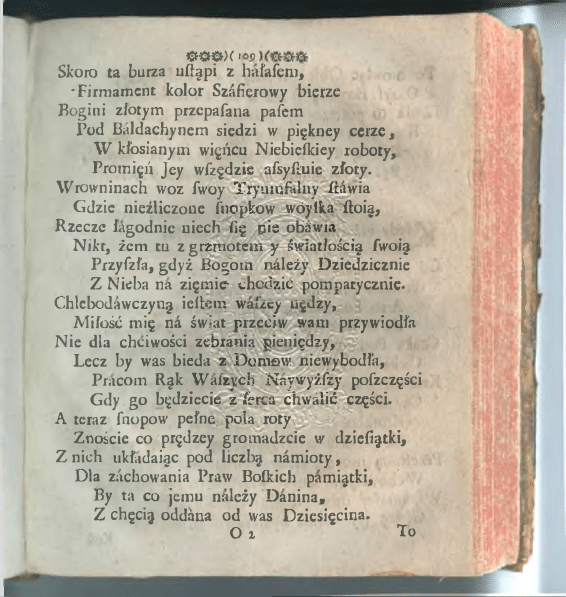 )( 109 )(
Skoro ta burza uſtąpi z háłaſem,
Firmament kolor Száfierowy bierze
Bogini złotym przepaſana paſem
Pod Báldachynem siedzi w piękney cerze,
W kłosianym więńcu Niebieſkiey roboty,
Promięń Jey wſzędzie aſsyſtuie złoty.
Wrowninach woz ſwoy Tryumfalny ſtáwia
Gdzie nieźliczone ſnopkow woyſka ſtoią,
Rzecze łágodnie niech ſię nie obáwia
Nikt, żem tu z grzmotem y świátłością ſwoią
Przyſzła, gdyż Bogom náleży Dziedzicznie
Z Nieba ná zięmie chodzić pompatycznie.
Chlebodáwczyną ieſtem wáſzey nędzy,
Miłość mię ná świat przeciw wam przywiodła
Nie dla chćiwości zebrania pieniędzy,
Lecz by was bieda z Domow niewybodła,
Prácom Rąk Wáſzych Náywyżſzy poſzczęści
Gdy go będziecie z ſerca chwalić części.
A teraz ſnopow pełne pola roty
Znoście co prędzey gromadzcie w dzieſiątki,
Z nich ukłádaiąc pod liczbą námioty,
Dla záchowania Praw Boſkich pámiątki,
By ta co jemu náleży Dánina,
Z chęcią oddána od was Dziesięcina.
O 2 To